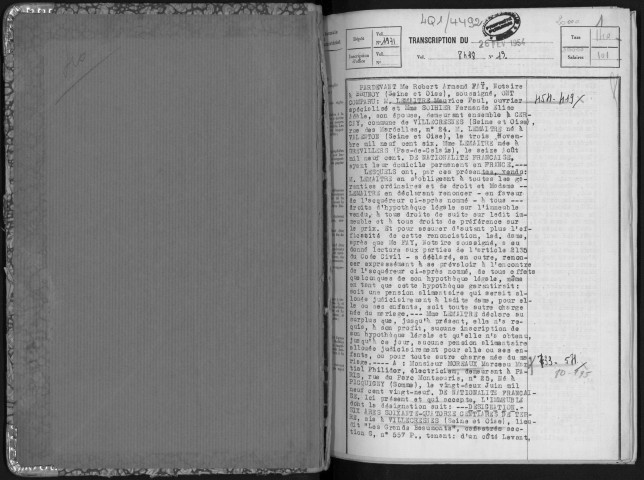 4Q1/4492
TRANSCRIPTION DU 26 FEV 1954
Dépôt Vol. N° 1971
Vol. 8488 n° 12
Taxe
Salaires
PARDEVANT Me Robert Armand FAY, Notaire
à BRUNOY (Seine et Oise), soussigné, ONT
COMPARU: M. LEMAITRE Maurice Paul, ouvrier
spécialisé et Mme GOIHIER Fernande Elise
Adèle, son épouse, demeurant ensemble à CER-
ÇAY, commune de VILLECRESNES (Seine et Oise),
rue des Merdelles, n° 24. M. LEMAITRE né à
VALENTON (Seine et Oise), le trois Novem-
bre mil neuf cent six. Mme LEMAITRE née à
HERVILLERS (Pas-de-Calais), le seize Août
mil neuf cent. DE NATIONALITE FRANCAISE,
ayant leur domicile permanent en FRANCE.---
LESQUELS ont, par ces présentes, vendu:
M. LEMAITRE en s'obligeant à toutes les ga-
ranties ordinaires et de droit et Madame --
LEMAITRE en déclarant renoncer - en faveur
de l'acquéreur ci-après nommé - à tous ---
droits d'hypothèque légale sur l'immeuble
vendu, à tous droits de suite sur ledit im
meuble et à tous droits de préférence sur
le prix. Et pour assurer d'autant plus l'ef-
ficacité de cette renonciation, lad. dame,
après que Me FAY, Notaire soussigné, a eu
donné lecture aux parties de l'article 2135
du Code Civil - a déclaré, en outre, renon-
cer expressément à se prévaloir à l'encontre
de l'acquéreur ci-après nommé, de tous effets
quelconques de son hypothèque légale, même
en tant que cette hypothèque garantirait:
soit une pension alimentaire qui serait al-
louée judiciairement à ladite dame, pour el-
le ou ses enfants, soit toute autre charge
née du mariage.--- Mme LEMAITRE déclare au
surplus que, jusqu'à présent, elle n'a re-
quis, à son profit, aucune inscription de
son hypothèque légale et qu'elle n'a obtenu,
jusqu'à ce jour, aucune pension alimentaire
allouée judiciairement pour elle ou ses en-
fants, ou pour toute autre charge née du ma-
riage.--- A : Monsieur MOREAUX Marceau Mar-
tial Philidor, électricien, demeurant à PA-
RIS, rue du Parc Montsouris, n° 25. Né à
PICQUIGNY (Somme), le vingt-deux Juin mil
neuf cent vingt-neuf. DE NATIONALITE FRANCAI-
SE, ici présent et qui accepte, L'IMMEUBLE
dont la désignation suit: ---DESIGNATION.-
DEUX ARES SOIXANTE-QUATORZE CENTIARES DE TER-
RE, sis à VILLECRESNES (Seine et Oise), lieu-
dit "Les Grands Beaumonts", cadastrés sec-
tion G, n° 557 P., tenant: d'un côté Levant,